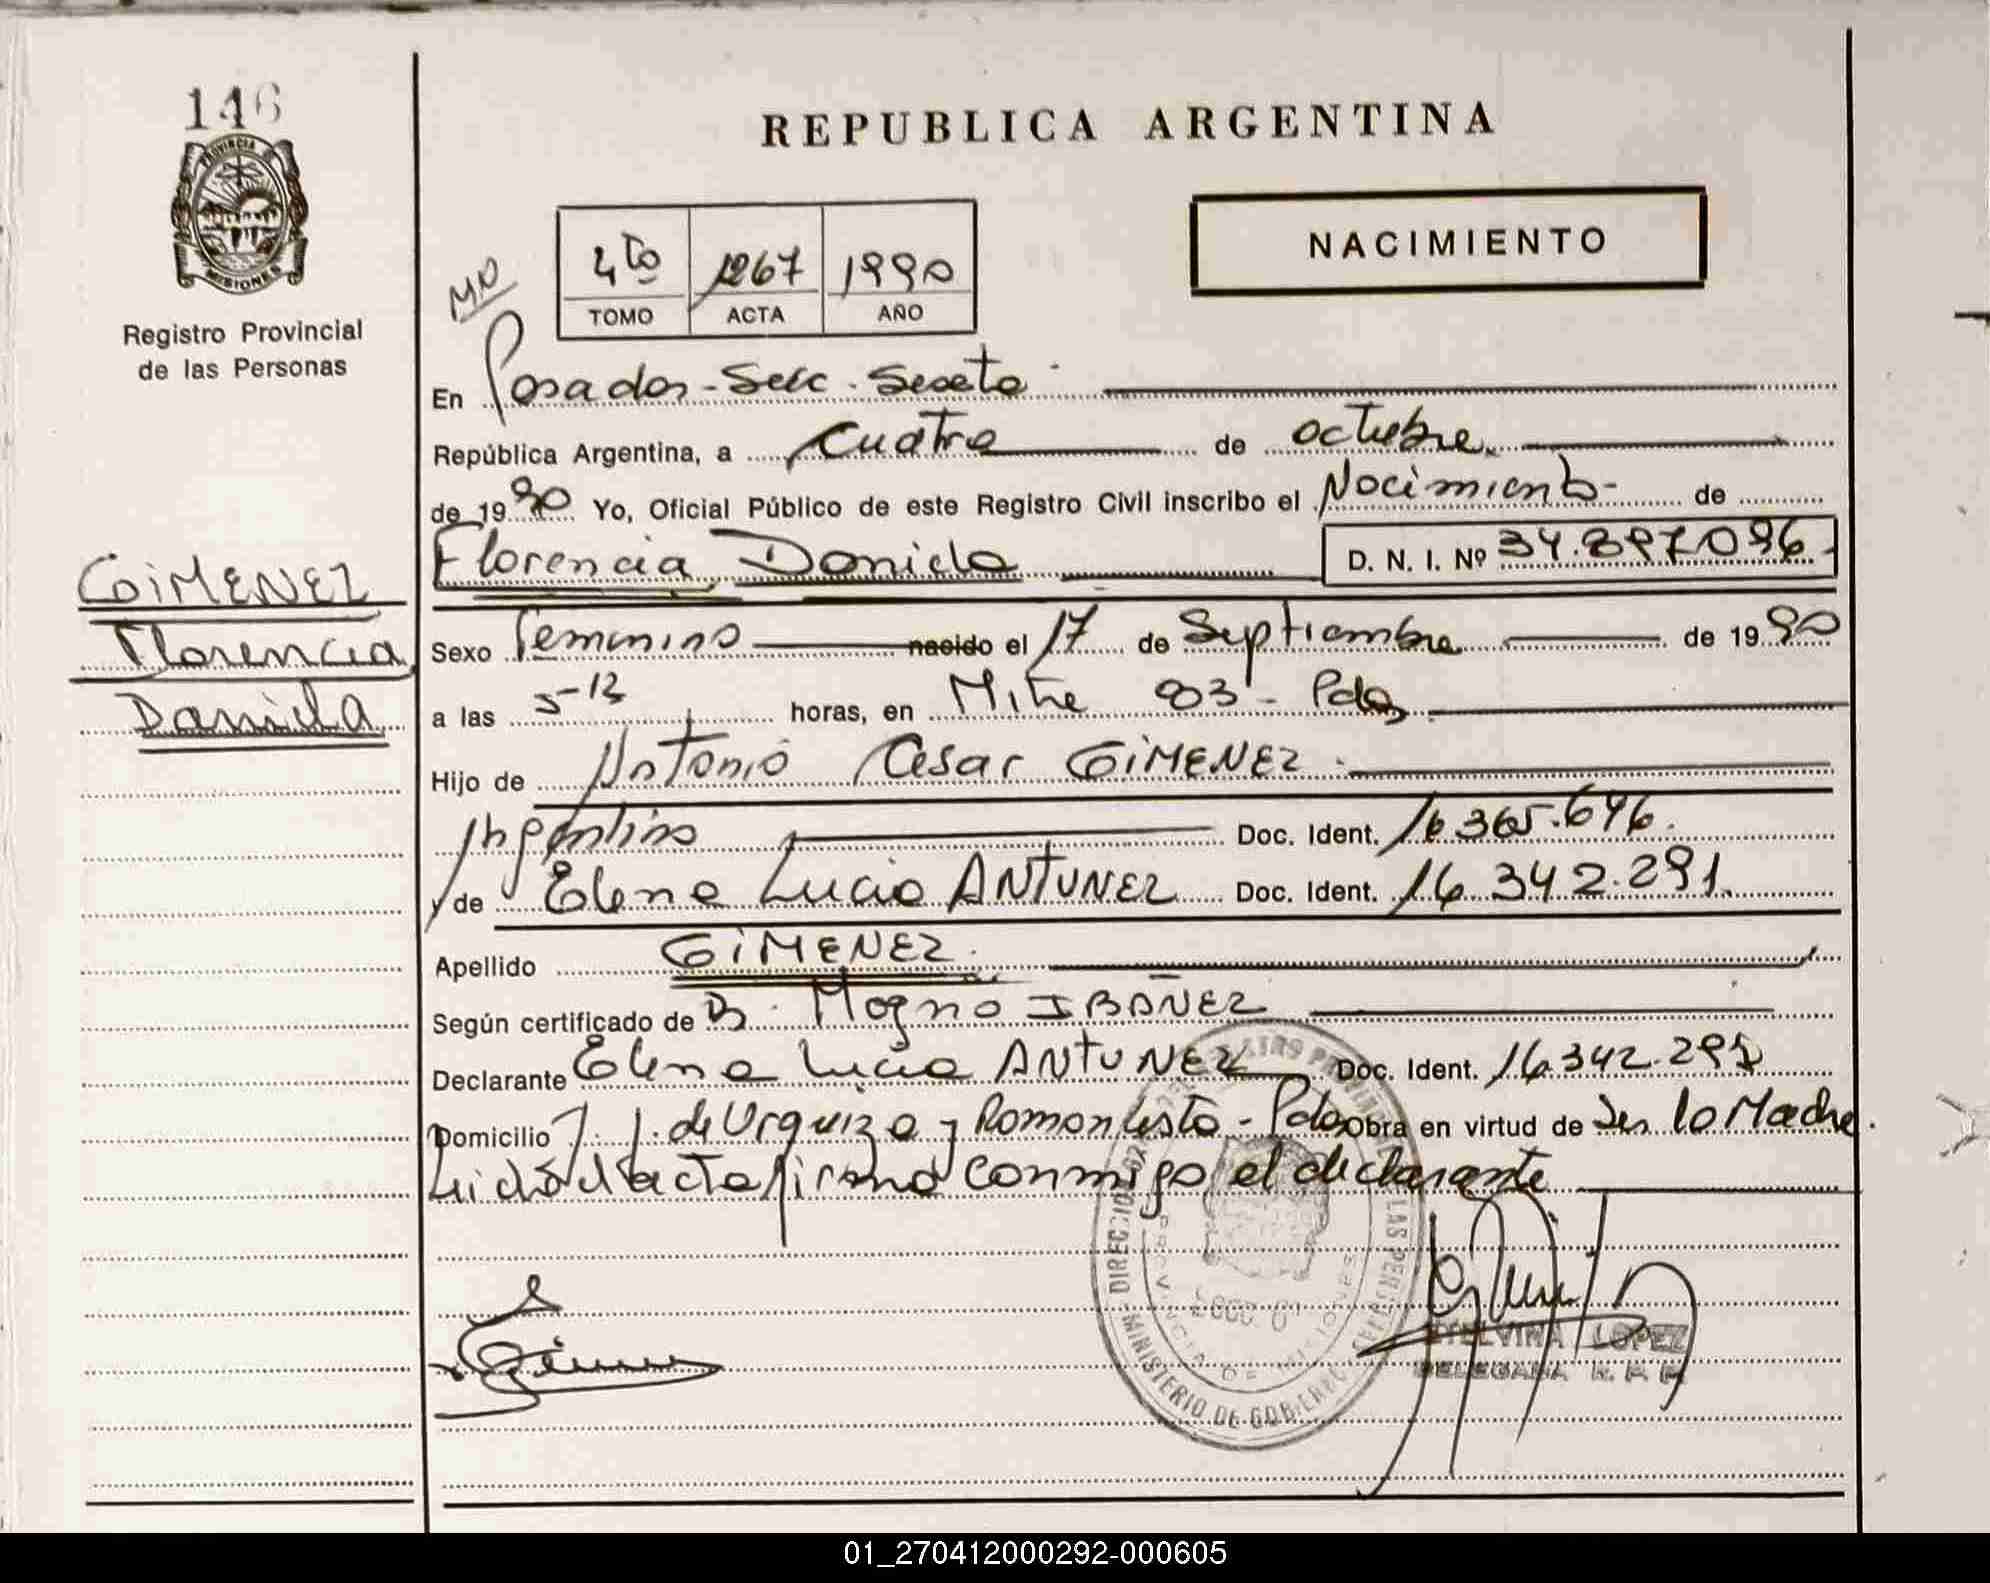 146
PROVINCIA
MISIONES
Registro Provincial
de las Personas
GIMENEZ
Florencia
Daniela
REPUBLICA ARGENTINA
NACIMIENTO
4to 1267 1990
TOMO ACTA AÑO
En Posadas - Secc. Sexta
República Argentina, a cuatro de octubre
de 1990 Yo, Oficial Público de este Registro Civil inscribo el Nacimiento de
Florencia Daniela D. N. I. Nº 34.897096
Sexo Femenino nacido el 17 de Septiembre de 1990
a las 5-13 horas, en Mitre 83 - Pdas
Hijo de Antonio Cesar GIMENEZ
Argentino Doc. Ident. 16.365.646.
y de Elena Lucia ANTUNEZ Doc. Ident. 16.342.291.
Apellido GIMENEZ.
Según certificado de IBAÑEZ
Declarante Elena Lucia ANTUNEZ Doc. Ident. 16.342.291
Domicilio J. J. de Urquiza y Pdas Obra en virtud de Ser la Madre.
Leida el acta firma conmigo el declarante
MINISTERIO DE GOBIERNO
PROVINCIA DE MISIONES
LOPEZ
DELEGADA R. P. P.
01_270412000292-000605